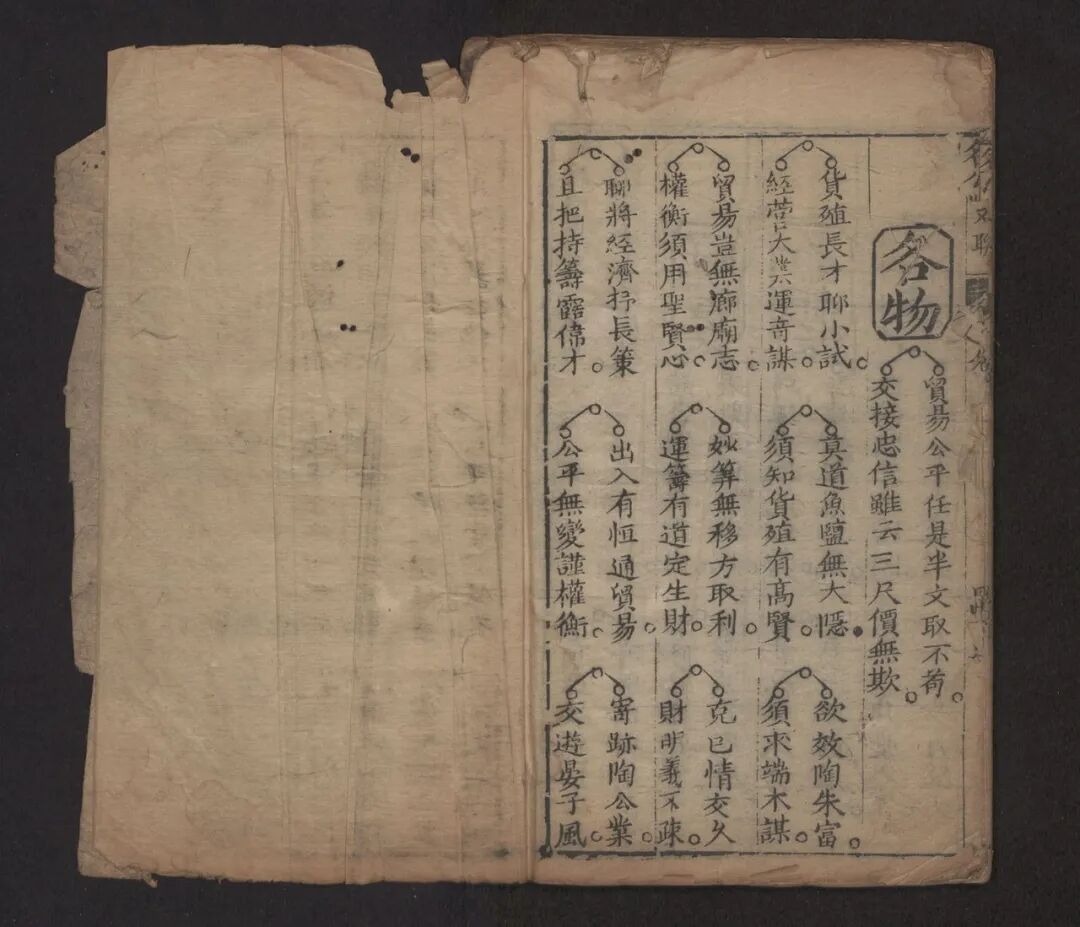 各物
貿易公平任是半文取不苟
交接忠信雖云三尺價無欺
貨殖長才聊小試
經營大業運奇謀
貿易豈無廊廟志
權衡須用聖賢心
聊將經濟抒長策
且把持籌露偉才
莫道魚鹽無大隱
須知貨殖有高賢
妙算無移方取利
運籌有道定生財
出入有恒通貿易
公平無變謹權衡
欲效陶朱富
須求端木謀
克已情交久
財明義不疎
寄跡陶公業
交遊晏子風